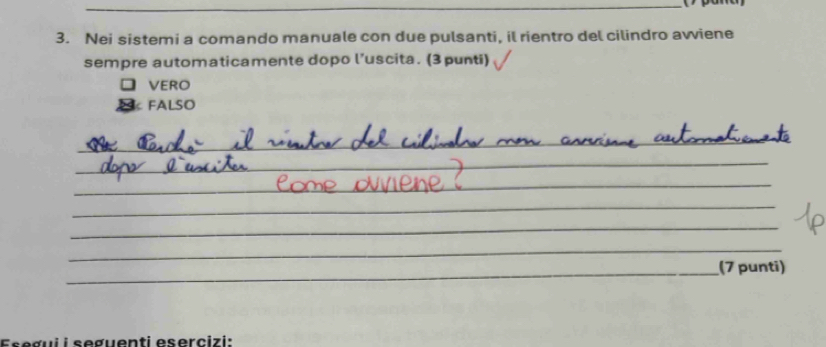 3. Nei sistemi a comando manuale con due pulsanti, il rientro del cilindro avviene
sempre automaticamente dopo l'uscita. (3 punti) ✓
☐ VERO
☒ FALSO
Perché il rientro del cilindro non avviene automaticamente
dopo l'uscita
come avviene?
1p
(7 punti)
Esegui i seguenti esercizi: